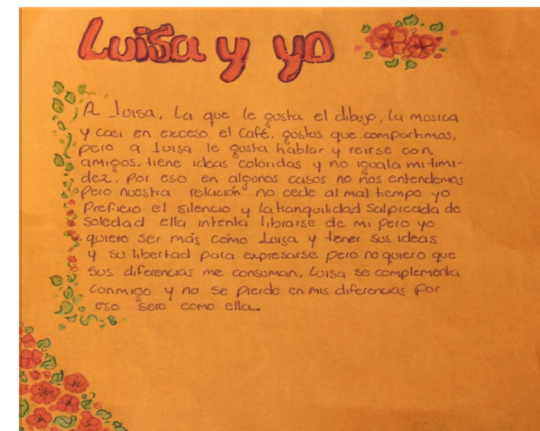 Luisa y yo
A Luisa, La que le gusta el dibujo, La musica
y casi en exceso el Café. gustos que compartimos,
pero a Luisa le gusta hablar y reirse con
amigos. tiene ideas coloridas y no iguala mi timi-
dez. Por eso en algunos casos no nos entendemos
Pero nuestra relación no cede al mal tiempo yo
Prefiero el silencio y La tranquilidad Salpicada de
Soledad ella intenta librarse de mi pero yo
quiero Ser más cómo Luisa y tener sus ideas
y su libertad para expresarse pero no quiero que
sus diferencias me consuman, Luisa se complementa
Conmigo y no se pierde en mis diferencias por
eso seré como ella.